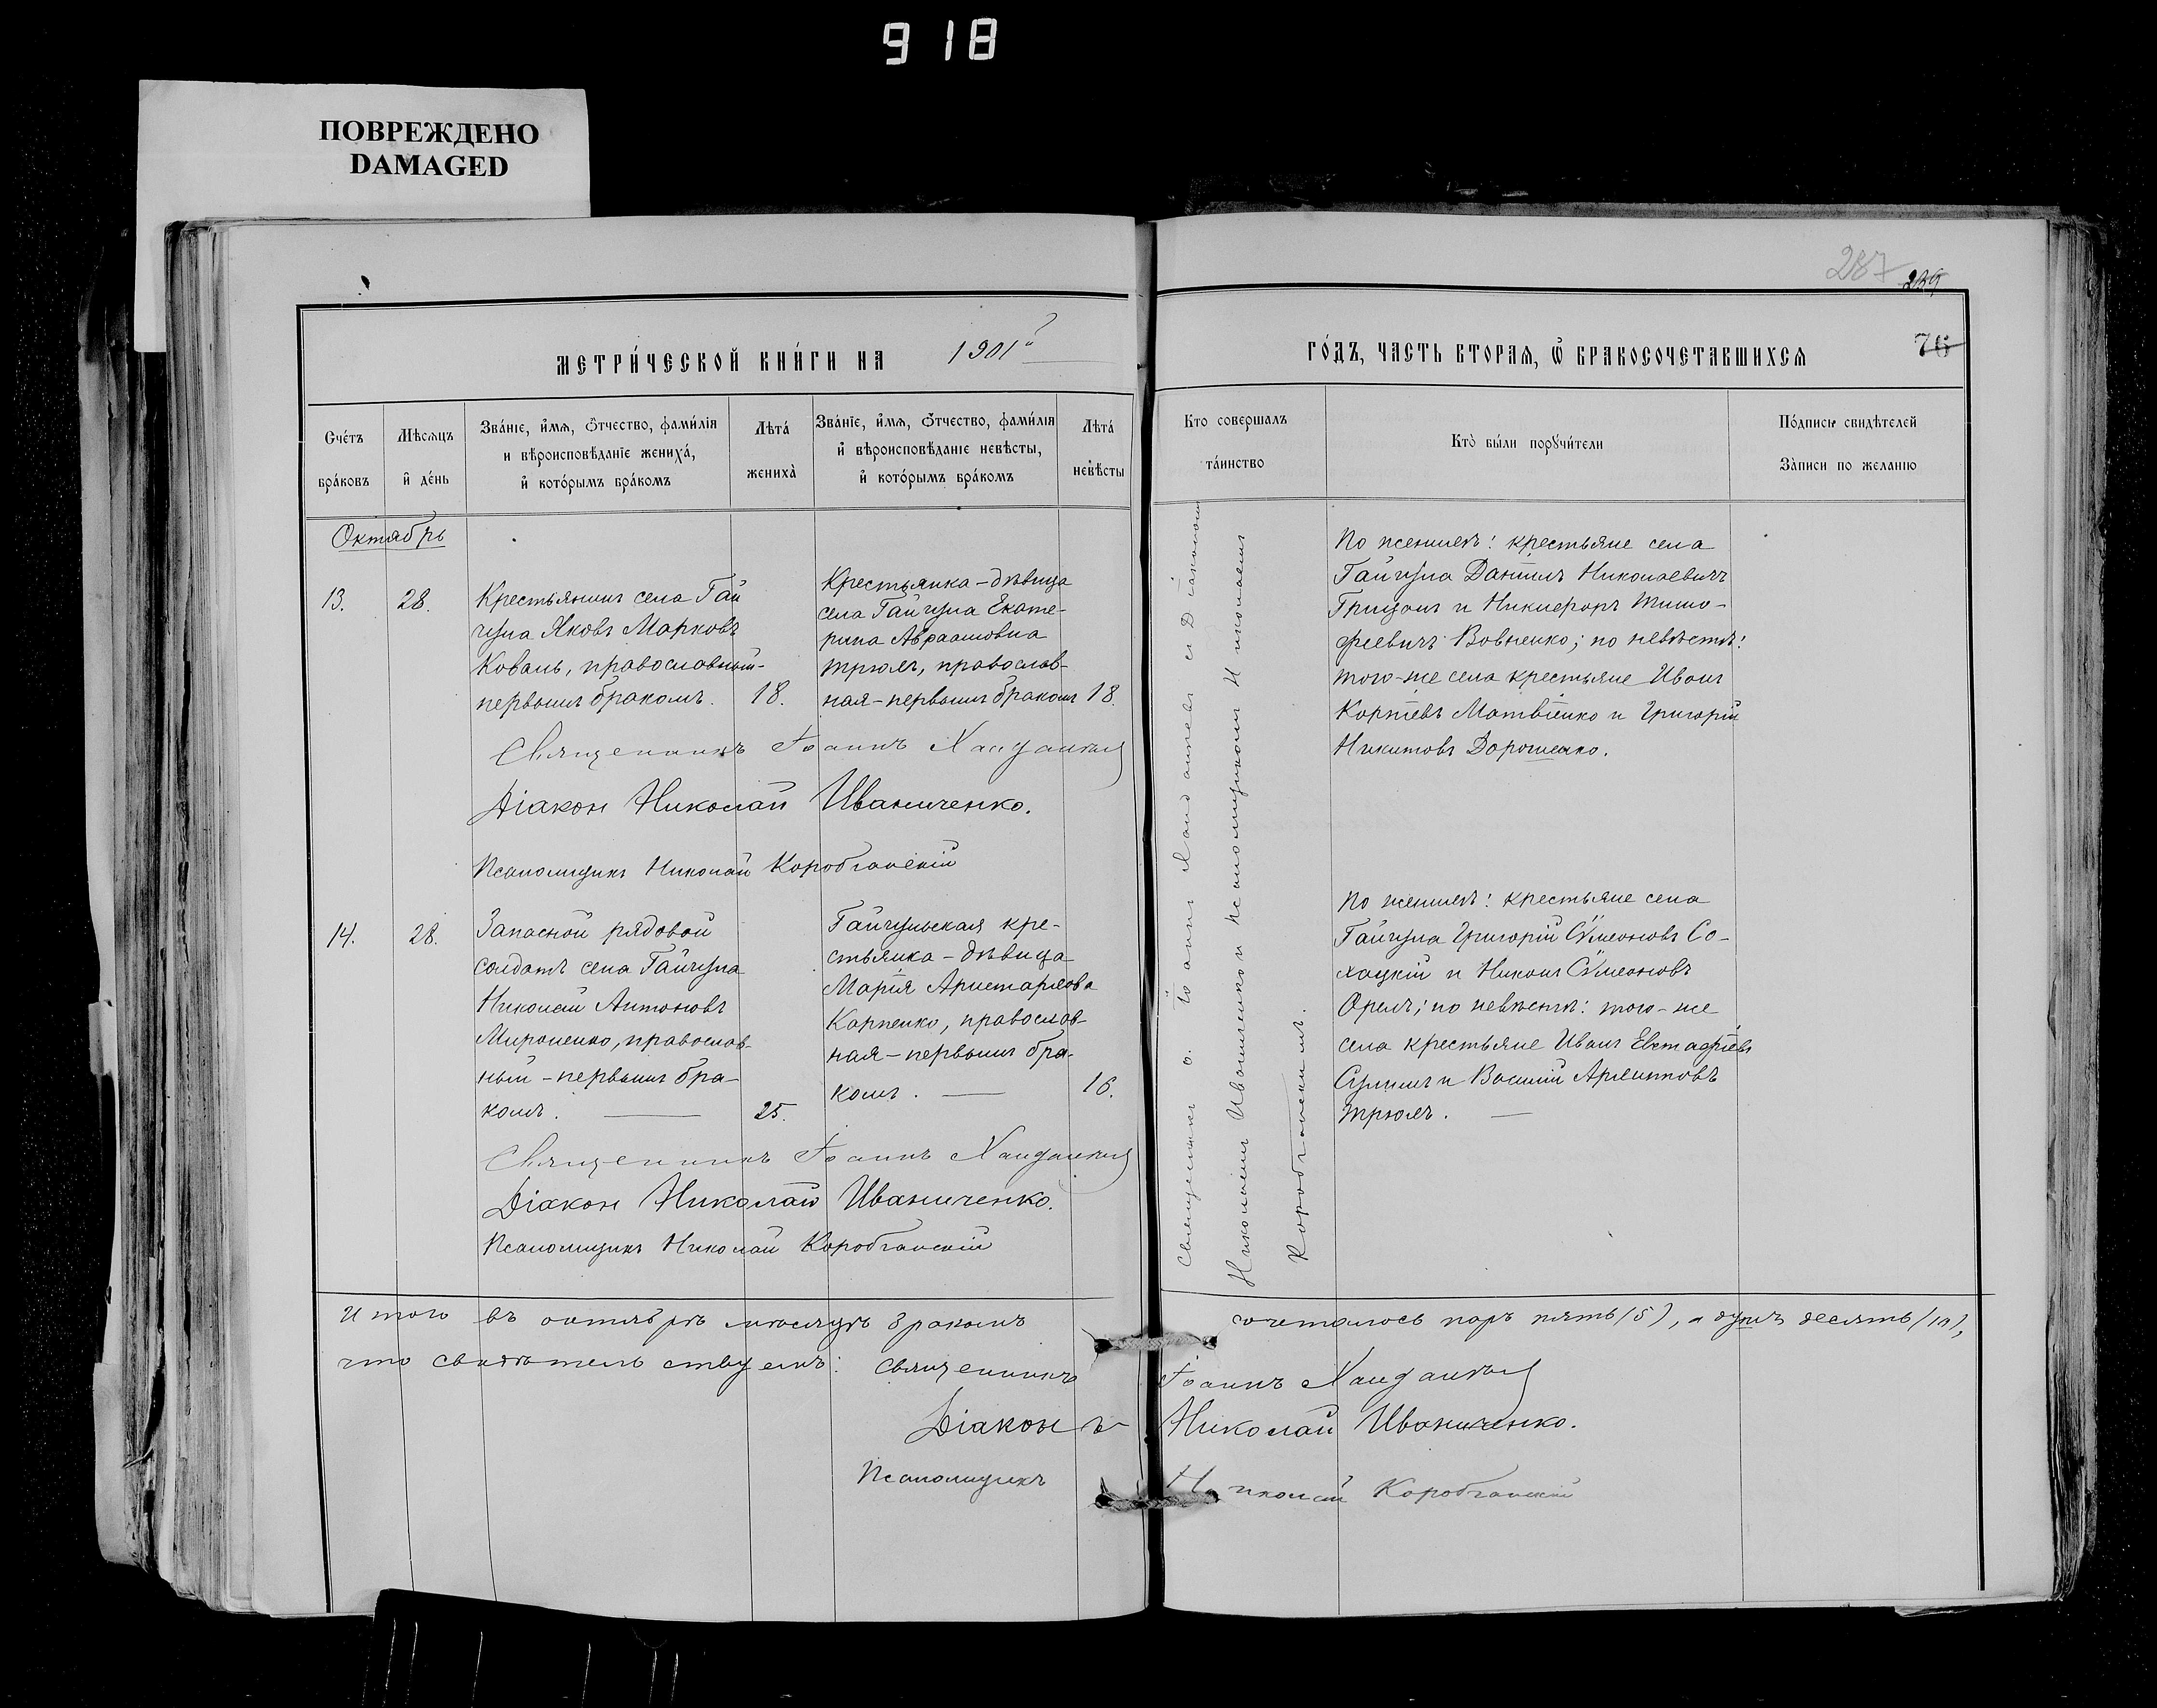 918
ПОВРЕЖДЕНО
DAMAGED
287
76
МЕТРИ́ЧЕСКОЙ КНИ́ГИ НА 1901й
ГО́ДЪ, ЧАСТЬ ВТОРАЯ, Ѡ БРАКОСОЧЕТАВШИХСЯ
Сче́тъ бра́ковъ
Мѣсяцъ и де́нь
Зва́нїе, и҆́мя, ѻ҆́тчество, фами́лїя
и вѣроисповѣ́данїе жениха́,
и҆ кото́рымъ бра́комъ
Лѣта́
жениха̀
Зва́нїе, и҆́мя, ѻ҆́тчество, фами́лїя
и҆ вѣроисповѣ́данїе невѣ́сты,
и҆ кото́рымъ бра́комъ
Лѣта́
невѣ́сты
Кто совершалъ
та́инство
Кто̀ бы́ли порꙋчи́тели
По́дписи свидѣ́телей
За́писи по желанїю
Октябрь
13.
28.
Крестьянинъ села Гай
чула Яковъ Марковъ
Коваль, православный-
первымъ бракомъ.
18.
Крестьянка-дѣвица
села Гайчула Екате-
рина Авраамовна
Трюхъ, православ-
ная-первымъ бракомъ
18.
По женихѣ: крестьяне села
Гайчула Даніилъ Николаевичъ
Грицанъ и Никифоръ Тимо-
феевичъ Вовненко; по невѣстѣ:
того-же села крестьяне Иванъ
Корніевъ Матвіенко и Григорій
Никитовъ Дорошенко.
Священникъ Іоаннъ
Діакон Николай Иваниченко.
Псаломщикъ Николай Коробчанскій
14.
28.
Запасной рядовой
солдатъ села Гайчула
Николай Антоновъ
Мироненко, православ-
ный-первымъ бра-
комъ.
25.
Гайчульская кре-
стьянка-дѣвица
Марія Аристархова
Карпенко, православ-
ная-первымъ бра-
комъ.
16.
По женихѣ: крестьяне села
Гайчула Григорій Сѵмеоновъ Со-
хацкій и Никонъ Сѵмеоновъ
Орелъ; по невѣстѣ: того-же
села крестьяне Иванъ Евстафіевъ
Сулимъ и Василій Архиповъ
Трюхъ.
Священникъ Іоаннъ
Діакон Николай Иваниченко.
Псаломщикъ Николай Коробчанскій
Священникъ о. Іоаннъ съ Діакономъ
Николаемъ Иваниченко и псаломщикомъ Николаемъ
Коробчанскимъ.
Итого въ октябрѣ мѣсяцѣ бракомъ сочеталось паръ пять (5), а душъ десять (10),
что свидѣтельствуемъ: Священникъ Іоаннъ
Діаконъ Николай Иваниченко.
Псаломщикъ Николай Коробчанскій